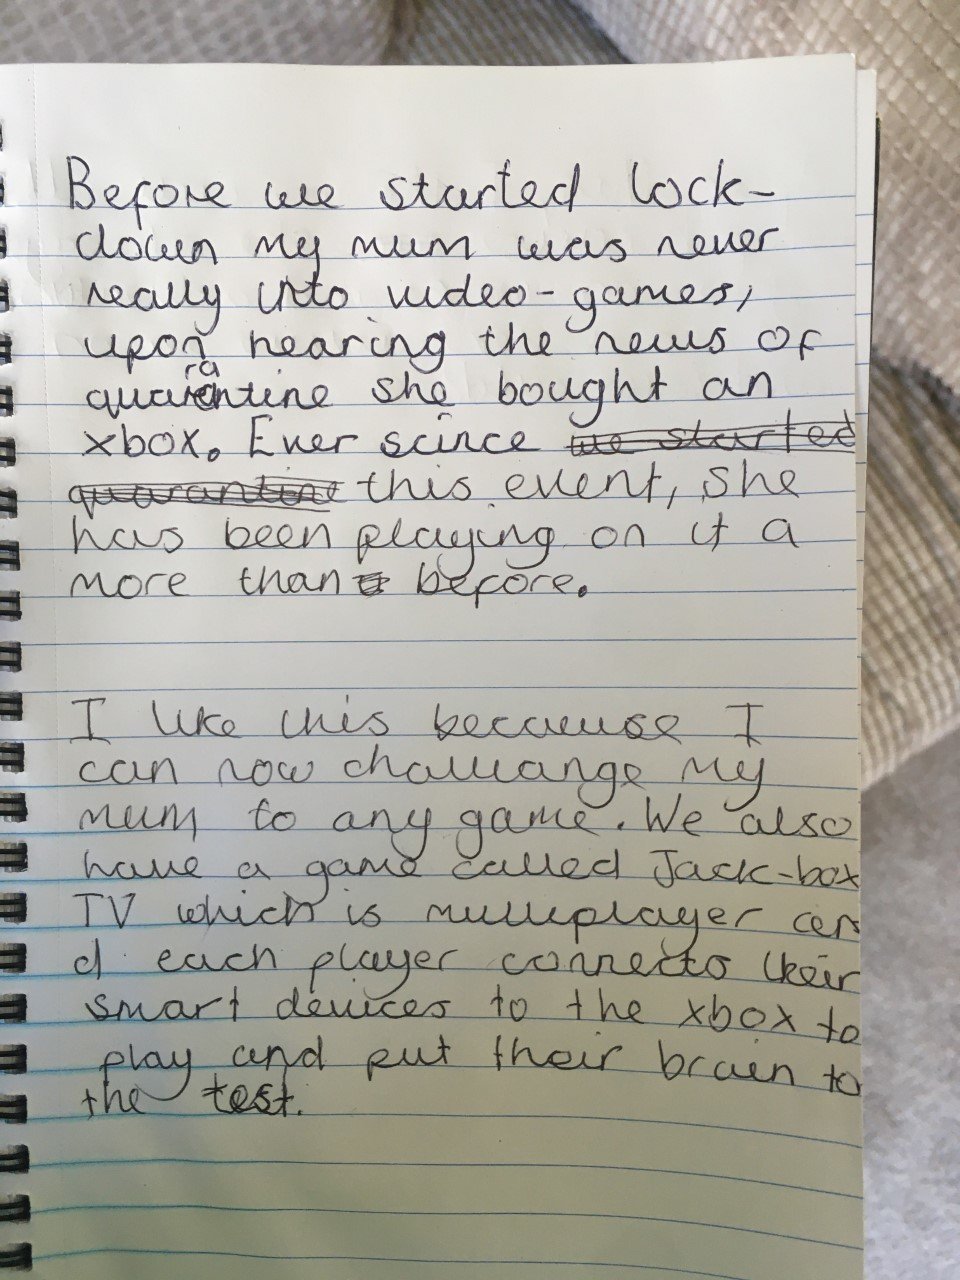 Before we started lock-
down my mum was never
really into video-games,
upon hearing the news of
quarantine she bought an
xbox. Ever scince we started
quarantine this event, she
has been playing on it a
more than before.
I like this because I
can now challange my
mum to any game. We also
have a game called Jack-box
TV which is multiplayer an
d each player connects their
smart devices to the xbox to
play and put their brain to
the test.